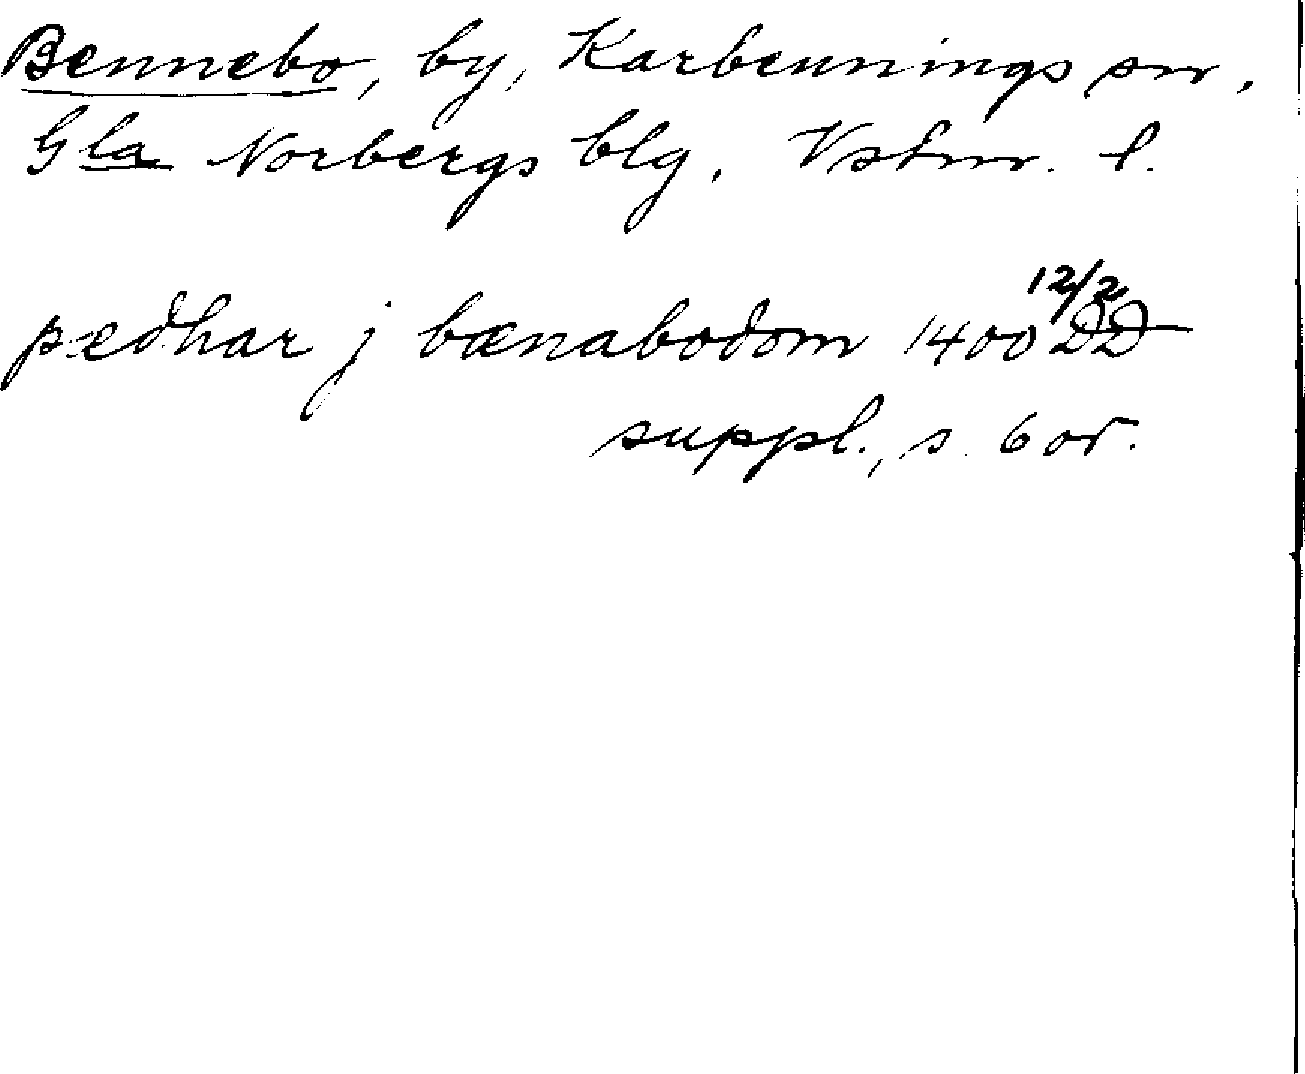 Bennebo, by, Karbennings sn,
Gla Norbergs blg, Vstm. l.
pædhar j bænabodom 1400 12/2 DD
suppl., s. 6 or.